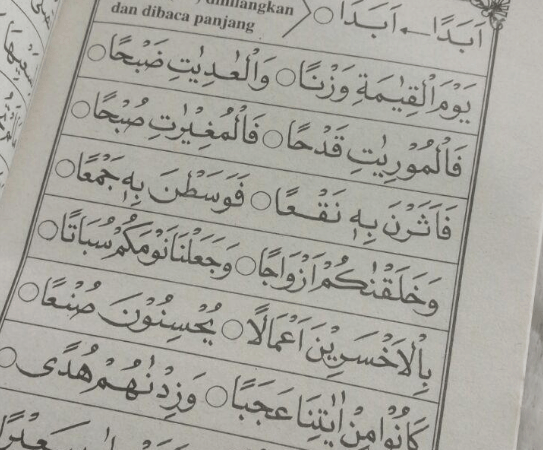 dihilangkan
dan dibaca panjang
اَبَدًا ← اَبَدَا ○
يَوْمَ الْقِيٰمَةِ وَزْنًا ○ وَالْعٰدِيٰتِ ضَبْحًا ○
فَالْمُوْرِيٰتِ قَدْحًا ○ فَالْمُغِيْرٰتِ صُبْحًا ○
فَاَثَرْنَ بِهٖ نَقْعًا ○ فَوَسَطْنَ بِهٖ جَمْعًا ○
وَخَلَقْنٰكُمْ اَزْوَاجًا ○ وَجَعَلْنَا نَوْمَكُمْ سُبَاتًا ○
بِالْاَخْسَرِيْنَ اَعْمَالًا ○ يُحْسِنُوْنَ صُنْعًا ○
كَانُوْا مِنْ اٰيٰتِنَا عَجَبًا ○ وَزِدْنٰهُمْ هُدًى ○
سَعِيْرًا